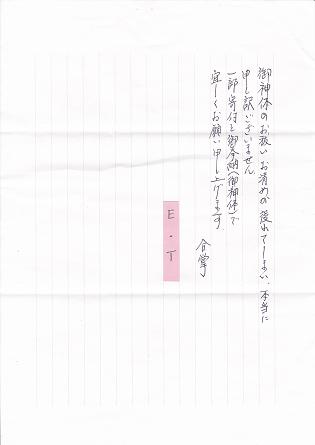 御神体のお祓い、お清めが遅れてしまい、本当に
申し訳ございません
一部寄付と御奉納(御神体)で
宜しくお願い申し上げます
合掌
E・T